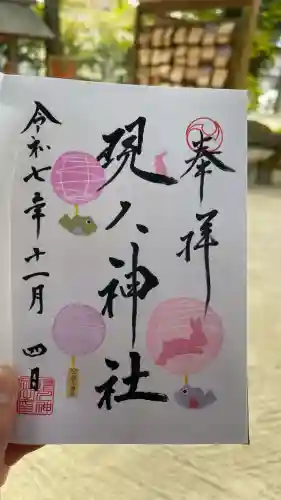 奉拝
現人神社
令和七年十一月四日